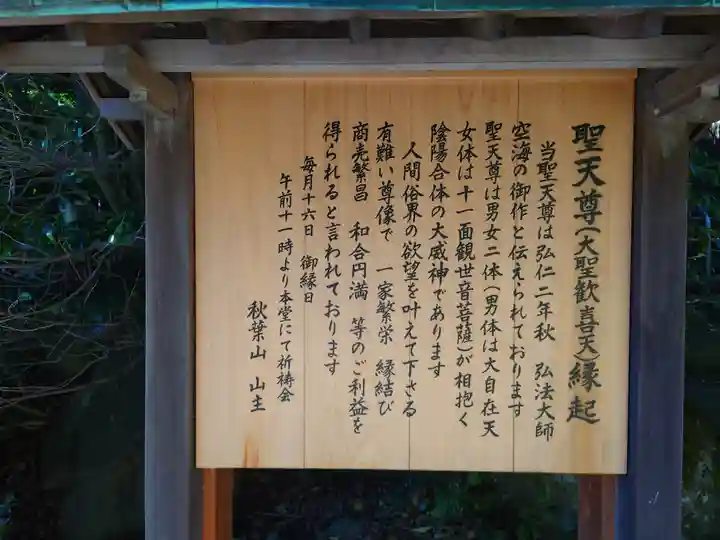 聖天尊(大聖歓喜天)縁起
当聖天尊は弘仁二年秋 弘法大師
空海の御作と伝えられております
聖天尊は男女二体(男体は大自在天
女体は十一面観世音菩薩)が相抱く
陰陽合体の大威神であります
人間俗界の欲望を叶えて下さる
有難い尊像で 一家繁栄 縁結び
商売繁昌 和合円満 等のご利益を
得られると言われております
毎月十六日 御縁日
午前十一時より本堂にて祈祷会
秋葉山 山主